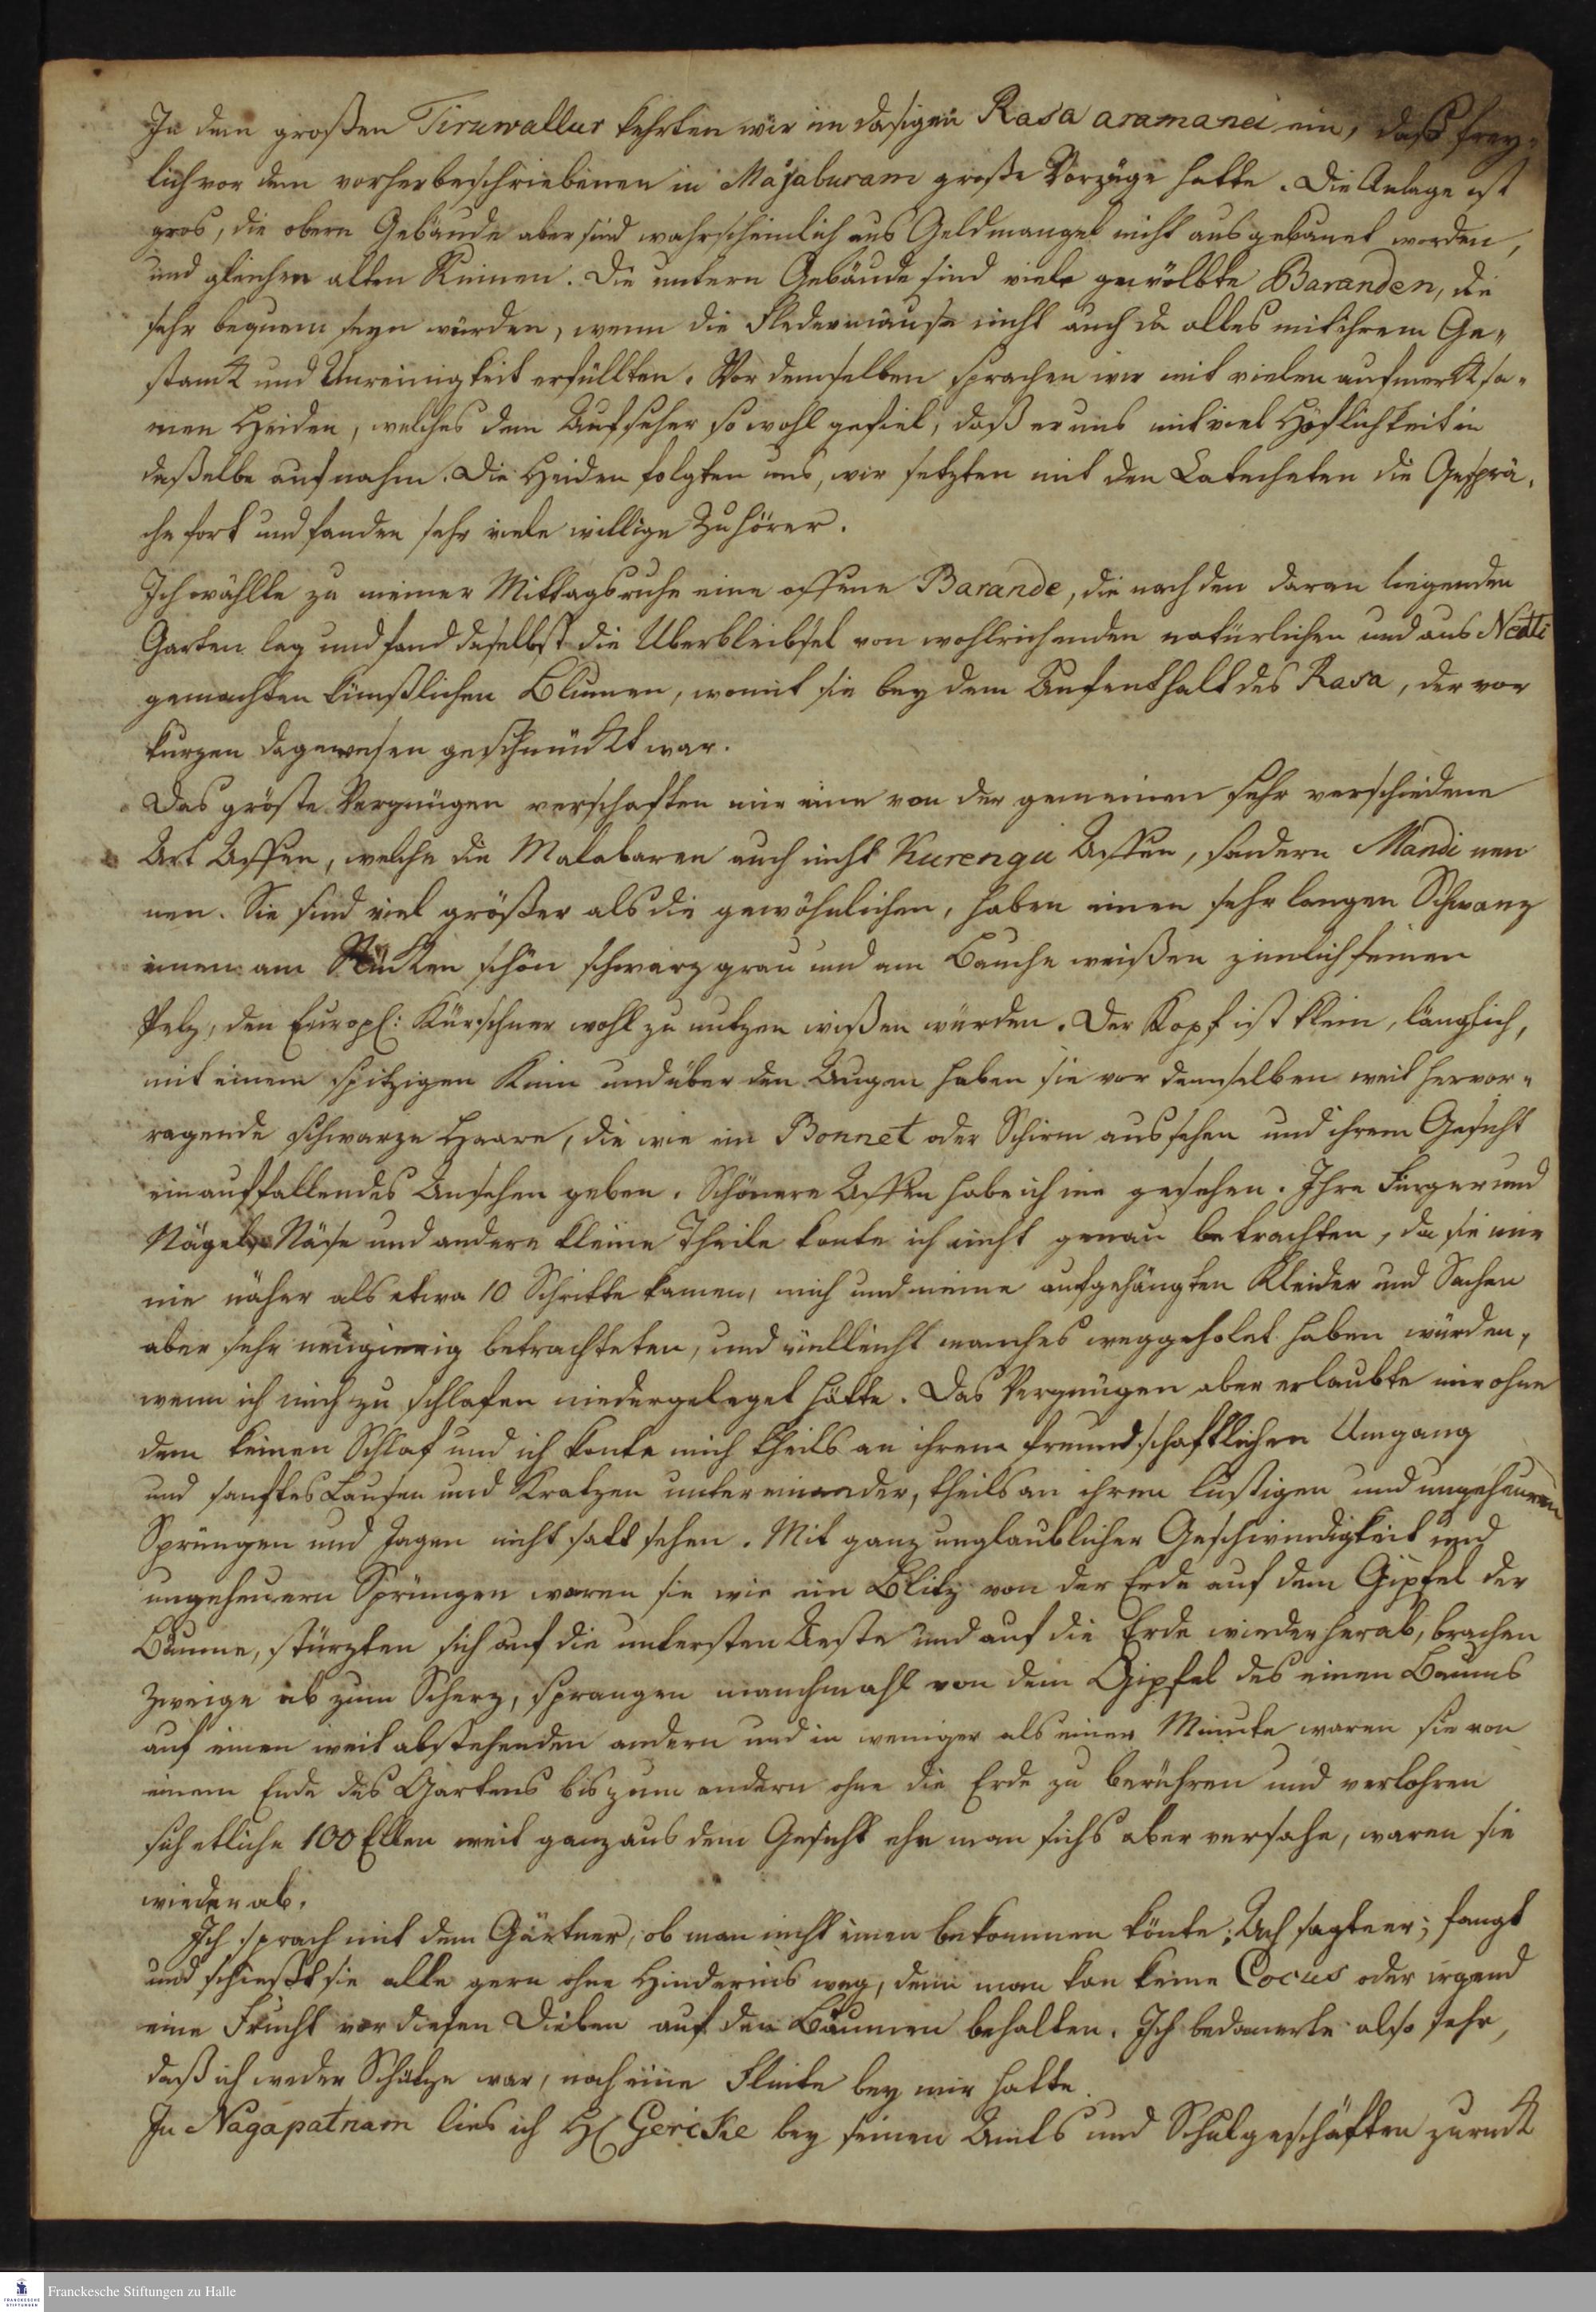 In dem großen Tiruwallur kehrten wir im dasigen Rasa aramanei ein, daß frey-
lich vor dem vorherbeschriebenen in Majaburam große Vorzüge hatte. Die Anlage ist
gros, die obern Gebäude aber sind wahrscheinlich aus Geldmangel nicht ausgebauet worden,
und gleichen alten Ruinen. Die untern Gebäude sind viele gewölbte Baranden, die
sehr bequem seyn würden, wenn die Fledermäuse nicht auch da alles mit ihrem Ge-
stank und Unreinigkeit erfüllten. Vor demselben sprachen wir mit vielen aufmerksa-
men Heiden, welches dem Aufseher so wohl gefiel, daß er uns mit viel Höflichkeit in
deßelbe aufnahm. Die Heiden folgten uns, wir setzten mit den Catecheten die Gesprä-
che fort und fanden sehr viele willige Zuhörer.
Ich wählte zu meiner Mittagsruhe eine offene Barande, die nach den daran liegenden
Garten lag und fand daselbst die Uberbleibsel von wohlriechenden natürlichen und aus Netti
gemachten künstlichen Blumen, womit sie bey dem Aufenthalt des Rasa, der vor
kurzen dagewesen geschmückt war.
Das gröste Vergnügen verschaften mir eine von der gemeinen sehr verschiedene
Art Affen, welche die Malabaren auch nicht Kurengu Affen, sondern Mandi nen
nen. Sie sind viel größer als die gewöhnlichen, haben einen sehr langen Schwanz
einen am Rücken schön schwarzgrau und am Bauche weißen zimlich feinen
Pelz, den Europ: Kürschner wohl zu nutzen wißen würden. Der Kopf ist klein, länglich,
mit einem spitzigen Kinn und über den Augen haben sie vor demselben weit hervor-
ragende schwarze Haare, die wie ein Bonnet oder Schirm aussehen und ihrem Gesicht
ein auffallendes Ansehen geben. Schönere Affen habe ich nie gesehen. Ihre Finger und
Nägel, Näse und andere kleine Theile konte ich nicht genau betrachten, da sie mir
nie näher als etwa 10 Schritte kamen, mich und meine aufgehängten Kleider und Sachen
aber sehr neugierig betrachteten, und vielleicht manches weggeholet haben würden,
wenn ich mich zu schlafen niedergeleget hätte. Das Vergnügen aber erlaubte mir ohne
dem keinen Schlaf und ich konte mich theils an ihrem freundschaftlichen Umgang
und sanftes Lausen und Kratzen untereinander, theils an ihren lustigen und ungeheuren
Sprüngen und Jagen nicht satt sehen. Mit ganz unglaublicher Geschwindigkeit und
ungeheuern Sprüngen waren sie wie ein Blitz von der Erde auf dem Gipfel der
Bäume, stürzten sich auf die untersten Aeste und auf die Erde wieder herab, brachen
Zweige ab zum Scherz, sprangen manchmahl von dem Gipfel des einen Baums
auf einen weit abstehenden andern und in weniger als einer Minute waren sie von
einem Ende des Gartens bis zum andern ohne die Erde zu berühren und verlohren
sich etliche 100 Ellen weit ganz aus dem Gesicht ehe man sichs aber versahe, waren sie
wieder ab.
Ich sprach mit dem Gärtner, ob man nicht einen bekommen könte; Ach sagte er; fangt
und schießt sie alle gern ohne Hinderniß weg, denn man kan keine Cocus oder irgend
eine Frucht vor diesen Dieben auf den Bäumen behalten. Ich bedauerte also sehr,
daß ich weder Schütze war, noch eine Flinte bey mir hatte.
In Nagapatnam lies ich H Gericke bey seinen Amts und Schulgeschäften zurück
Franckesche Stiftungen zu Halle